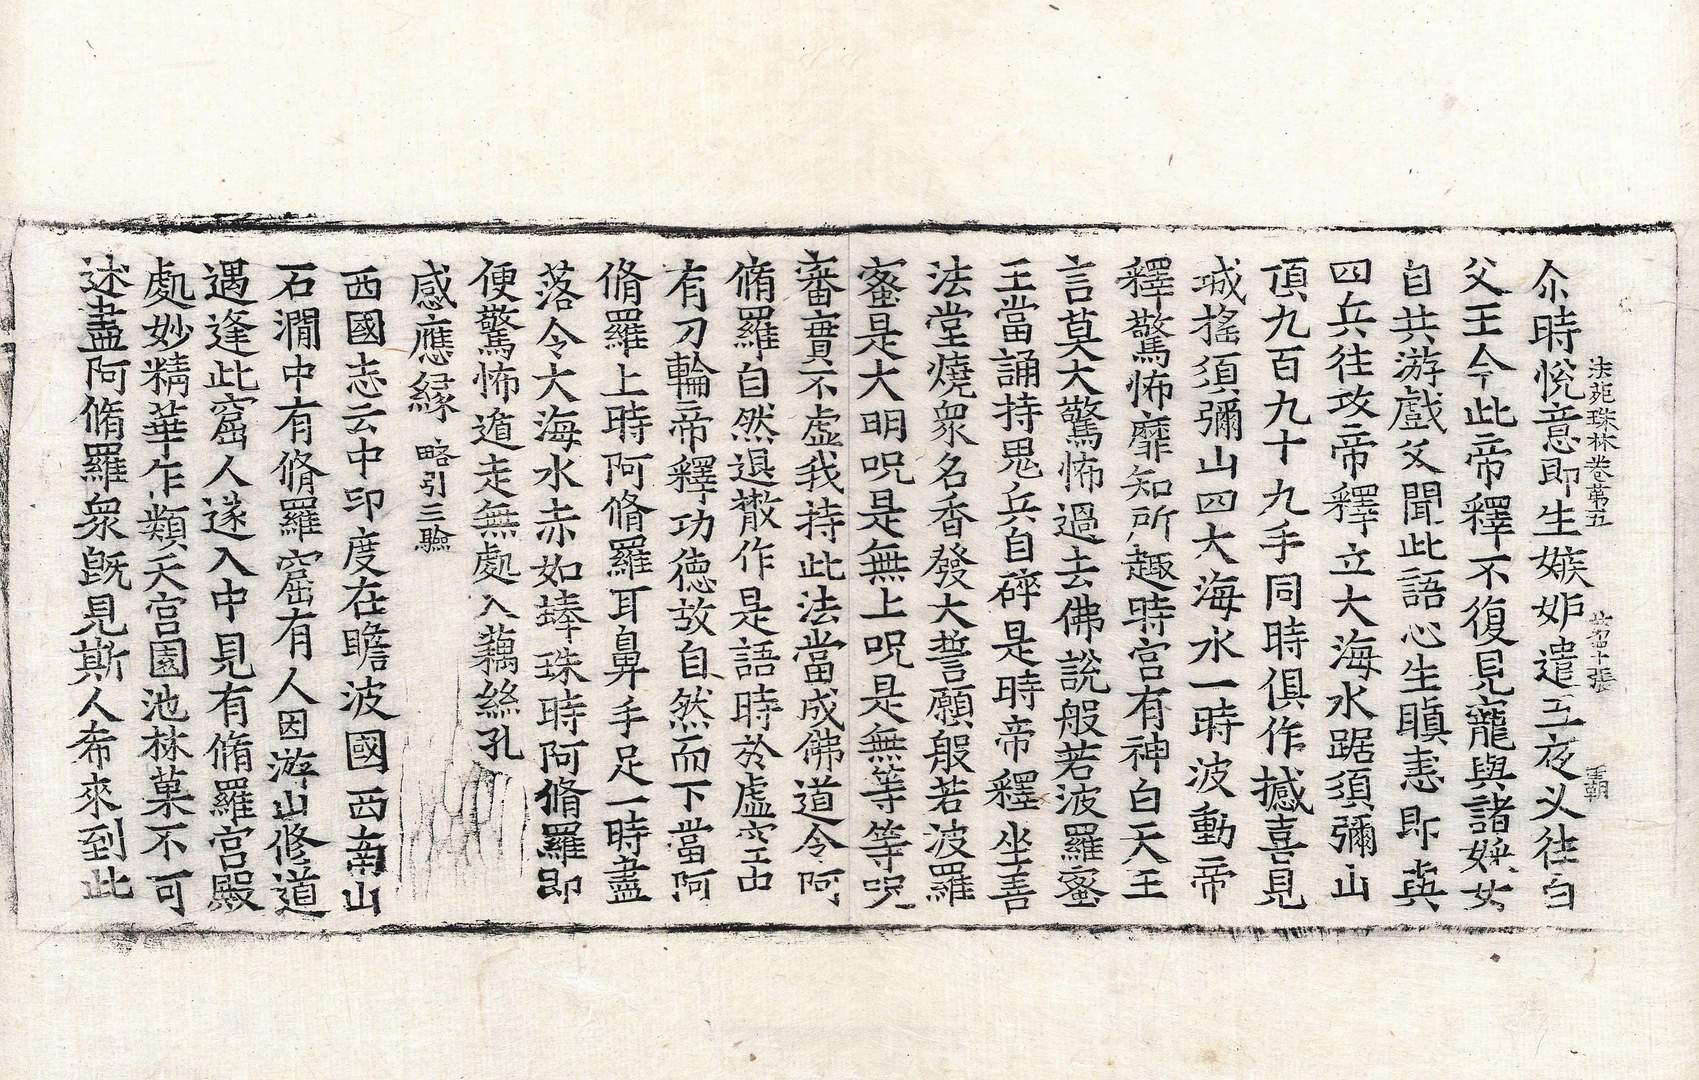 法苑珠林卷第五　第四十張　霸
尒時悅意即生嫉妒遣五夜叉往白
父王今此帝釋不復見寵與諸婇女
自共游戲父聞此語心生瞋恚即興
四兵往攻帝釋立大海水踞須彌山
頂九百九十九手同時俱作撼喜見
城搖須彌山四大海水一時波動帝
釋驚怖靡知所趣時宮有神白天王
言莫大驚怖過去佛說般若波羅蜜
王當誦持鬼兵自碎是時帝釋坐善
法堂燒衆名香發大誓願般若波羅
蜜是大明呪是無上呪是無等等呪
審實不虛我持此法當成佛道令阿
脩羅自然退散作是語時於虛空中
有刀輪帝釋功德故自然而下當阿
脩羅上時阿脩羅耳鼻手足一時盡
落令大海水赤如蜯珠時阿脩羅即
便驚怖遁走無處入藕絲孔
感應緣 略引三驗
西國志云中印度在瞻波國西南山
石澗中有脩羅窟有人因游山修道
遇逢此窟人遂入中見有脩羅宮殿
處妙精華乍類天宮園池林菓不可
述盡阿脩羅衆旣見斯人希來到此